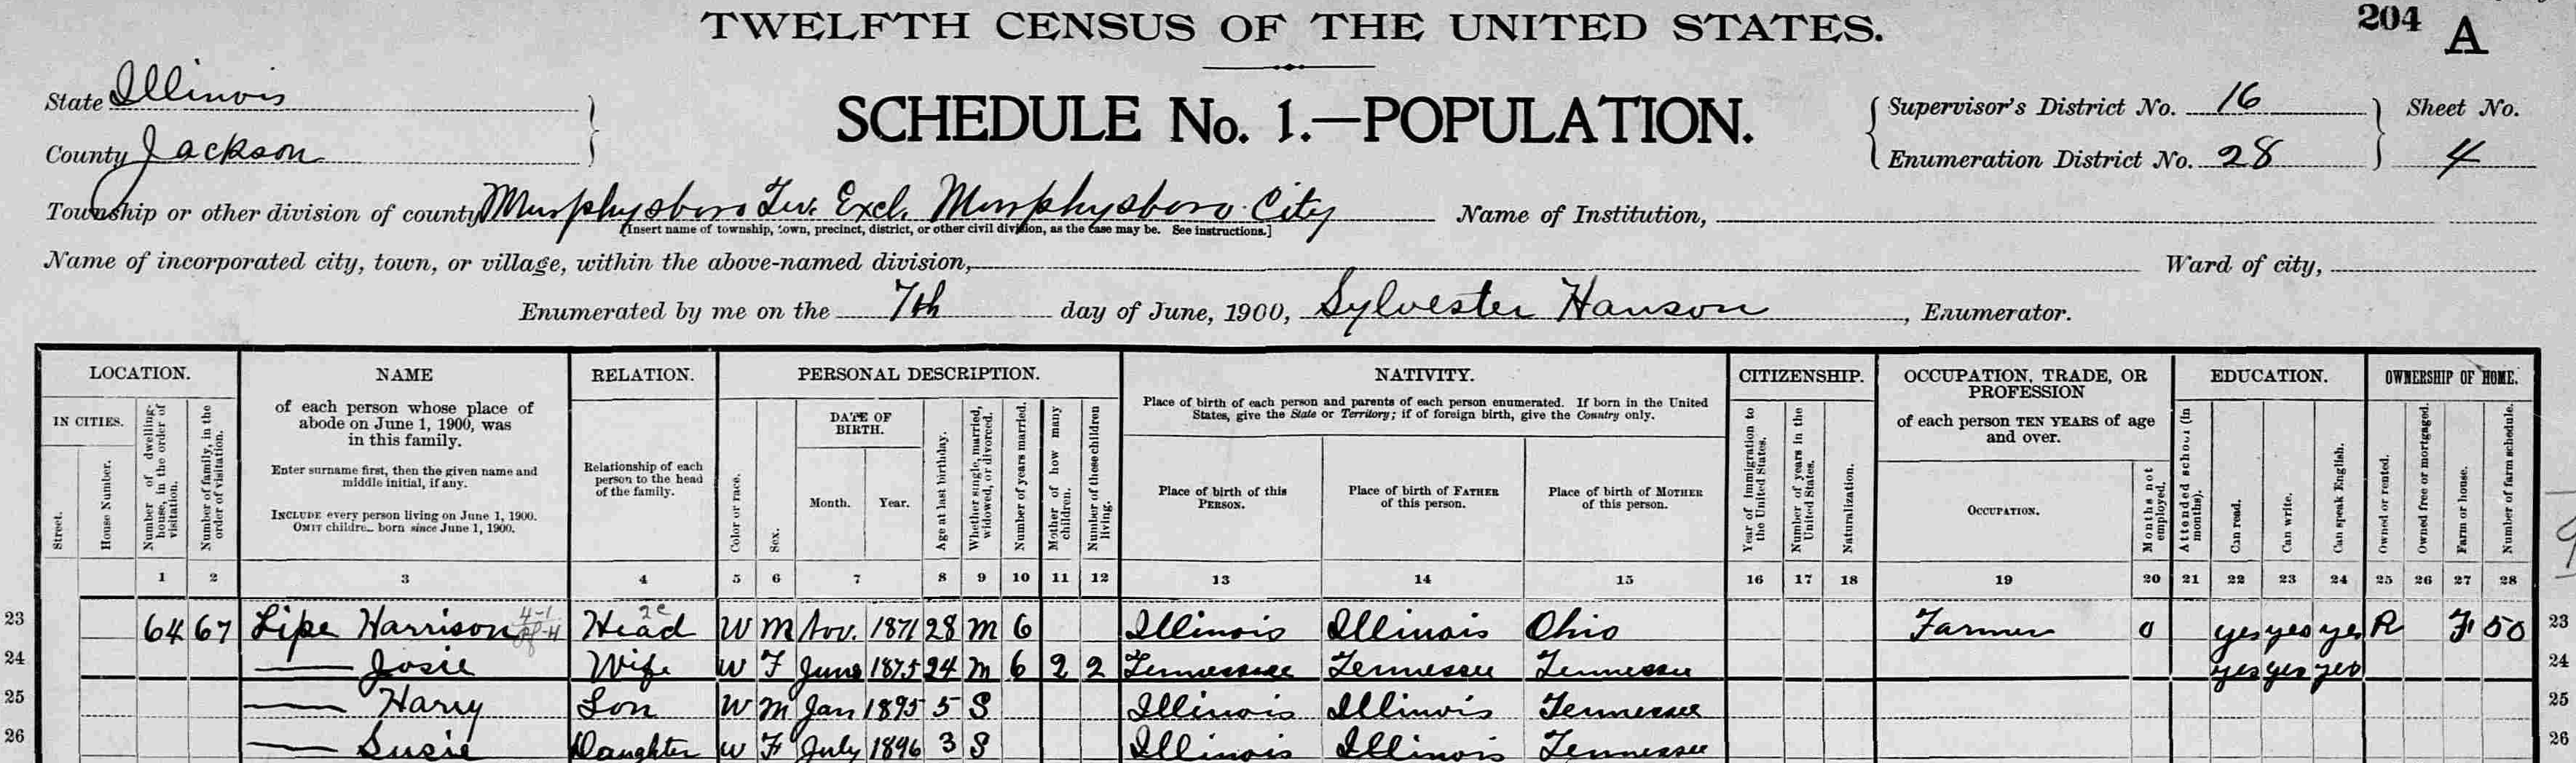 TWELFTH CENSUS OF THE UNITED STATES.
204 A
State Illinois
County Jackson
SCHEDULE No. 1.—POPULATION.
Supervisor's District No. 16
Enumeration District No. 28
Sheet No.
4
Township or other division of county Murphysboro Tw. Excl. Murphysboro City
[Insert name of township, town, precinct, district, or other civil division, as the case may be. See instructions.]
Name of Institution,
Name of incorporated city, town, or village, within the above-named division,
Ward of city,
Enumerated by me on the 7th day of June, 1900, Sylvester Hanson, Enumerator.
LOCATION.
IN CITIES.
Street.
House Number.
Number of dwelling-house, in the order of visitation.
Number of family, in the order of visitation.
NAME
of each person whose place of
abode on June 1, 1900, was
in this family.
Enter surname first, then the given name and
middle initial, if any.
INCLUDE every person living on June 1, 1900.
OMIT children born since June 1, 1900.
RELATION.
Relationship of each
person to the head
of the family.
PERSONAL DESCRIPTION.
Color or race.
Sex.
DATE OF
BIRTH.
Month.
Year.
Age at last birthday.
Whether single, married, widowed, or divorced.
Number of years married.
Mother of how many children.
Number of these children living.
NATIVITY.
Place of birth of each person and parents of each person enumerated. If born in the United
States, give the State or Territory; if of foreign birth, give the Country only.
Place of birth of this
PERSON.
Place of birth of FATHER
of this person.
Place of birth of MOTHER
of this person.
CITIZENSHIP.
Year of immigration to the United States.
Number of years in the United States.
Naturalization.
OCCUPATION, TRADE, OR
PROFESSION
of each person TEN YEARS of age
and over.
OCCUPATION.
Months not employed.
EDUCATION.
Attended school (in months).
Can read.
Can write.
Can speak English.
OWNERSHIP OF HOME.
Owned or rented.
Owned free or mortgaged.
Farm or house.
Number of farm schedule.
1 2 3 4 5 6 7 8 9 10 11 12 13 14 15 16 17 18 19 20 21 22 23 24 25 26 27 28
23 64 67 Lipe Harrison Head W M Nov. 1871 28 M 6 Illinois Illinois Ohio Farmer 0 yes yes yes R F 50 23
24 — Josie Wife W F June 1875 24 M 6 2 2 Tennessee Tennessee Tennessee yes yes yes 24
25 — Harry Son W M Jan 1895 5 S Illinois Illinois Tennessee 25
26 — Susie Daughter W F July 1896 3 S Illinois Illinois Tennessee 26